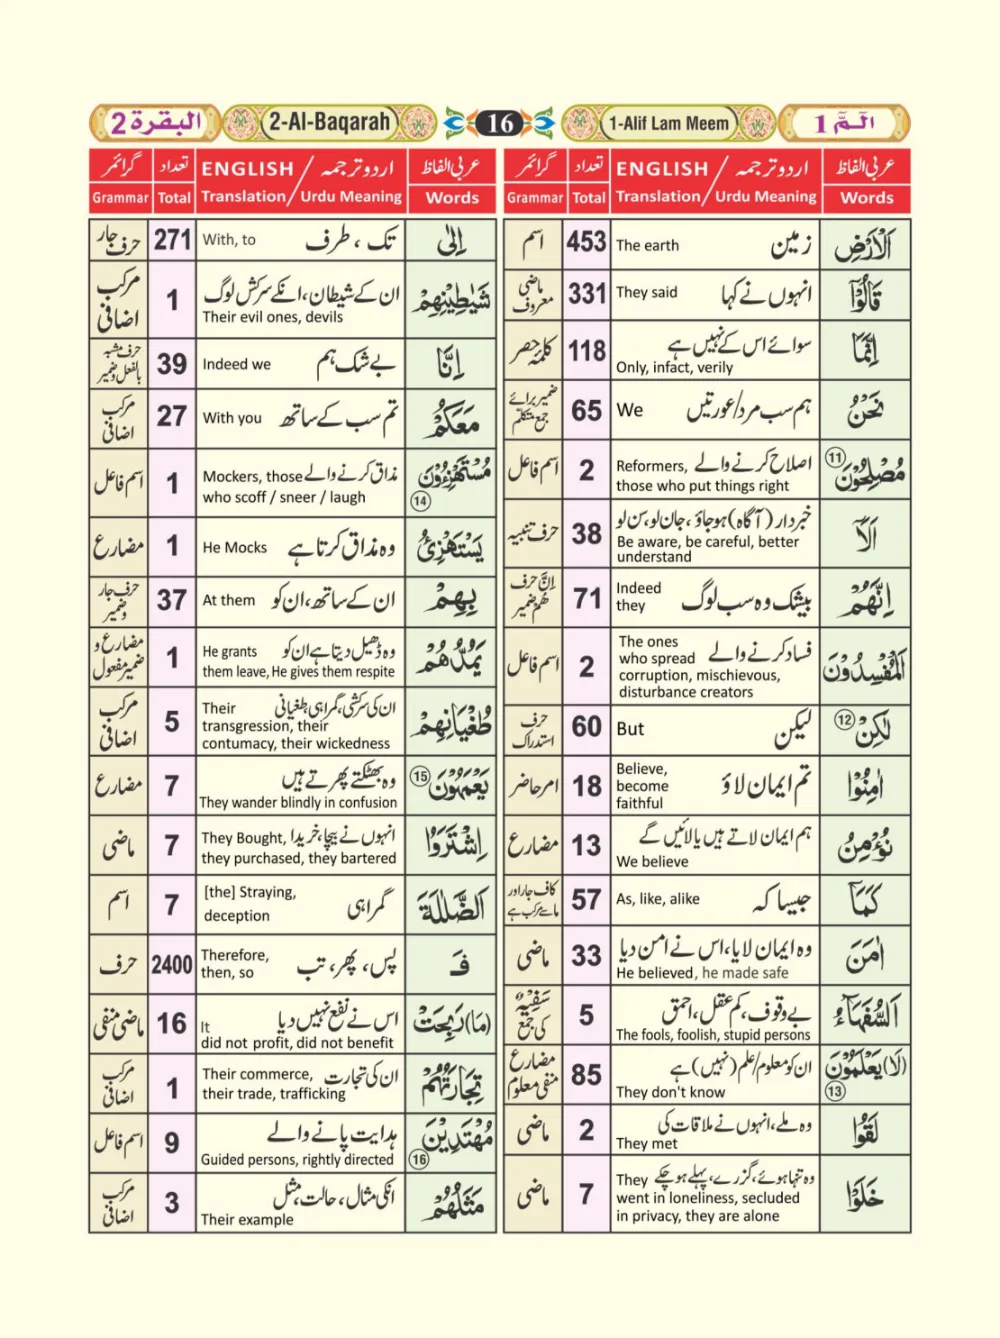 البقرة 2
2-Al-Baqarah
16
1-Alif Lam Meem
الٓمّٓ 1
عربی الفاظ اردو ترجمہ / ENGLISH تعداد گرائمر
Words Urdu Meaning / Translation Total Grammar
اَلْاَرْضِ زمین The earth 453 اسم
قَالُوْٓا انہوں نے کہا They said 331 ماضی معروف
اِنَّمَا سوائے اس کے نہیں ہے 118 کلمہ حصر
Only, infact, verily
نَحْنُ ہم سب مرد/عورتیں We 65 ضمیر برائے جمع متکلم
مُصْلِحُوْنَ ⑪ اصلاح کرنے والے Reformers, 2 اسم فاعل
those who put things right
اَلَآ خبردار (آگاہ) ہو جاؤ، جان لو، سن لو 38 حرف تنبیہ
Be aware, be careful, better
understand
اِنَّهُمْ بیشک وہ سب لوگ Indeed 71 اِنَّ حرف هُمْ ضمیر
they
اَلْمُفْسِدُوْنَ فساد کرنے والے The ones 2 اسم فاعل
who spread
corruption, mischievous,
disturbance creators
لٰكِنْ ⑫ لیکن But 60 حرف استدراک
اٰمِنُوْا تم ایمان لاؤ Believe, 18 امر حاضر
become
faithful
نُؤْمِنُ ہم ایمان لاتے ہیں یا لائیں گے 13 مضارع
We believe
كَمَآ جیسا کہ As, like, alike 57 کاف جار اور ما سے مرکب ہے
اٰمَنَ وہ ایمان لایا، اس نے امن دیا 33 ماضی
He believed, he made safe
اَلسُّفَهَآءُ بے وقوف، کم عقل، احمق 5 سَفِيْهٌ کی جمع
The fools, foolish, stupid persons
(لَا) يَعْلَمُوْنَ ⑬ ان کو معلوم/علم (نہیں) ہے 85 مضارع منفی معلوم
They don't know
لَقُوْا وہ ملے، انہوں نے ملاقات کی 2 ماضی
They met
خَلَوْا وہ تنہا ہوئے، گزرے، پہلے ہو چکے They 7 ماضی
went in loneliness, secluded
in privacy, they are alone
عربی الفاظ اردو ترجمہ / ENGLISH تعداد گرائمر
Words Urdu Meaning / Translation Total Grammar
اِلٰى تک ، طرف With, to 271 حرف جار
شَيٰطِيْنِهِمْ ان کے شیطان، انکے سرکش لوگ 1 مرکب اضافی
Their evil ones, devils
اِنَّا بے شک ہم Indeed we 39 حرف مشبہ بالفعل و ضمیر
مَعَكُمْ تم سب کے ساتھ With you 27 مرکب اضافی
مُسْتَهْزِءُوْنَ ⑭ مذاق کرنے والے Mockers, those 1 اسم فاعل
who scoff / sneer / laugh
يَسْتَهْزِئُ وہ مذاق کرتا ہے He Mocks 1 مضارع
بِهِمْ ان کے ساتھ، ان کو At them 37 حرف جار و ضمیر
يَمُدُّهُمْ وہ ڈھیل دیتا ہے ان کو He grants 1 مضارع و ضمیر مفعول
them leave, He gives them respite
طُغْيَانِهِمْ ان کی سرکشی، گمراہی، طغیانی Their 5 مرکب اضافی
transgression, their
contumacy, their wickedness
يَعْمَهُوْنَ ⑮ وہ بھٹکتے پھرتے ہیں 7 مضارع
They wander blindly in confusion
اِشْتَرَوُا انہوں نے بیچا، خریدا They Bought, 7 ماضی
they purchased, they bartered
اَلضَّلٰلَةَ گمراہی [the] Straying, 7 اسم
deception
فَـ پس، پھر، تب Therefore, 2400 حرف
then, so
(مَا) رَبِحَتْ اس نے نفع نہیں دیا It 16 ماضی منفی
did not profit, did not benefit
تِجَارَتُهُمْ ان کی تجارت Their commerce, 1 مرکب اضافی
their trade, trafficking
مُهْتَدِيْنَ ⑯ ہدایت پانے والے 9 اسم فاعل
Guided persons, rightly directed
مَثَلُهُمْ انکی مثال، حالت، مثل 3 مرکب اضافی
Their example